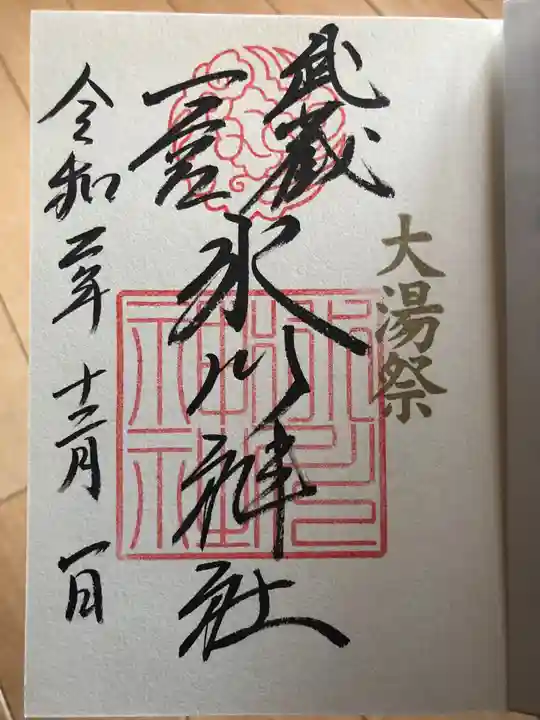 大湯祭
武蔵
一宮
氷川神社
令和二年十二月一日
氷川
神社